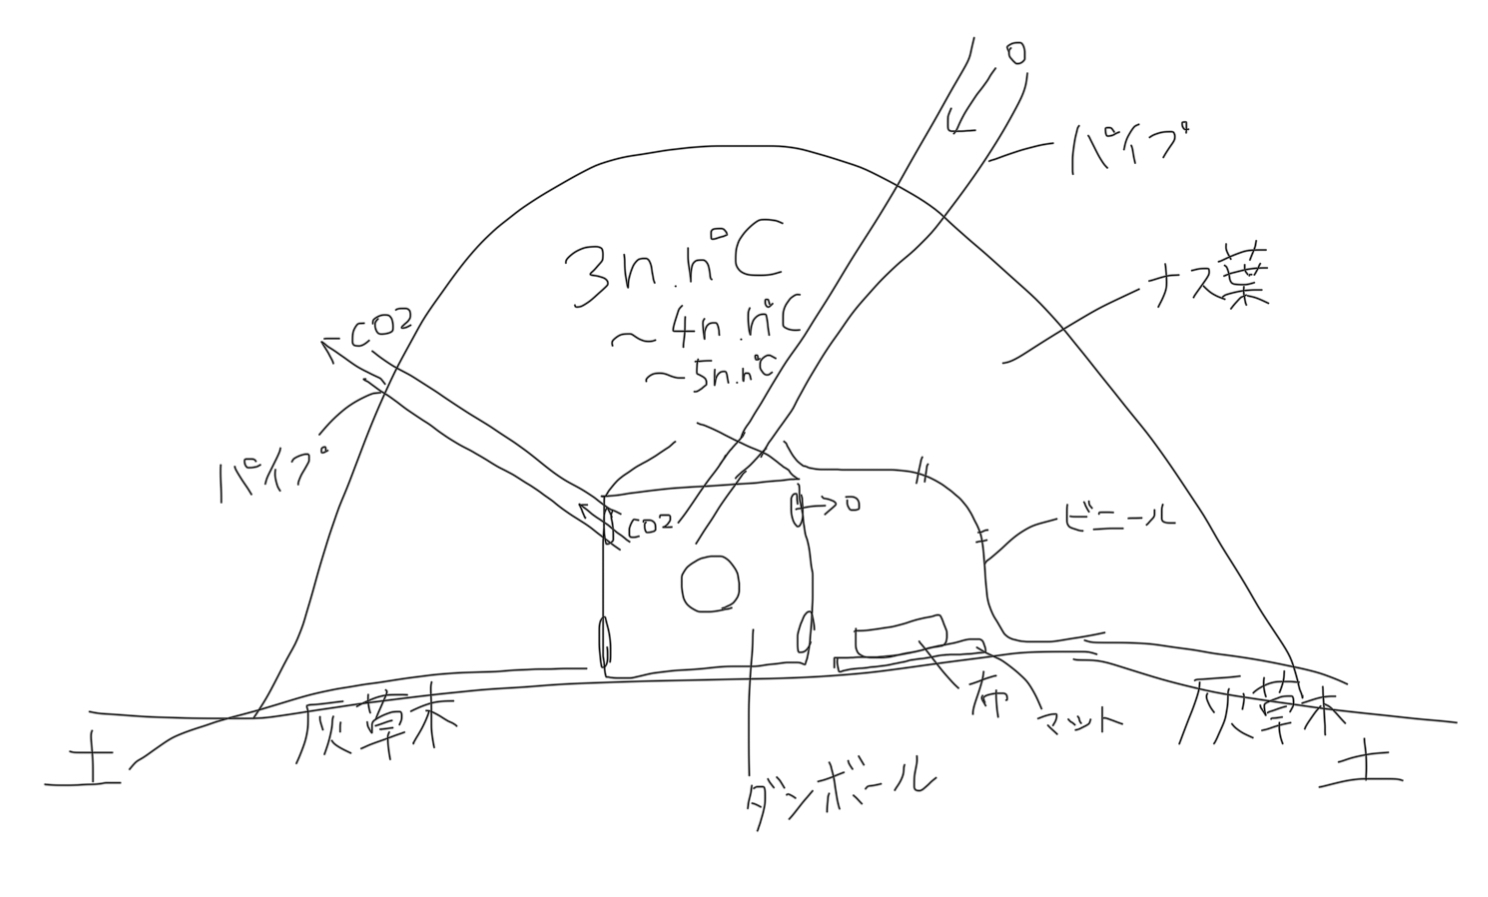 O
パイプ
ナス葉
3n.n°C
~4n.n°C
~5n.n°C
CO2
パイプ
CO2
O
ビニール
布
マット
灰草木
灰草木
土
土
ダンボール